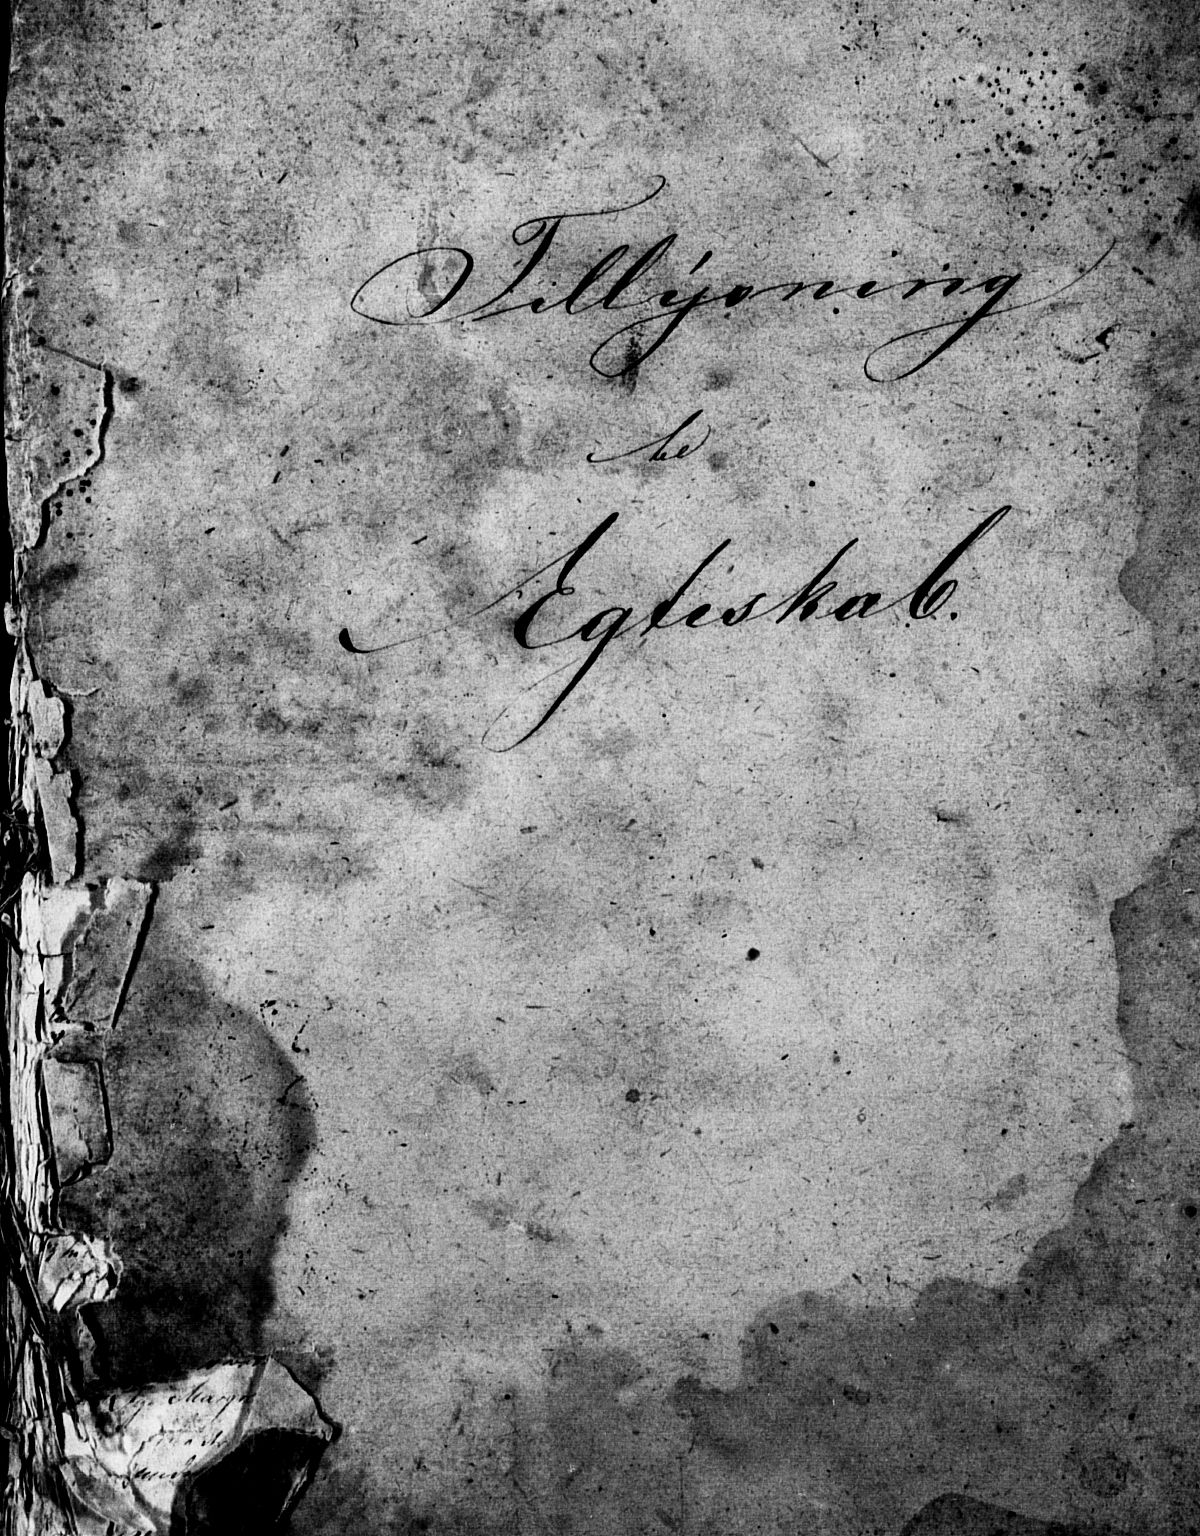 Tillysning
be
Egteskab.